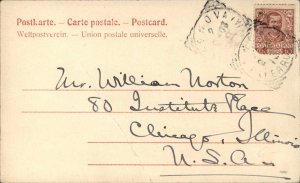 Postkarte. – Carte postale. – Postcard.
Weltpostverein. – Union postale universelle.
Mr. William Norton
80 Institute Place
Chicago, Illinois
U.S.A.